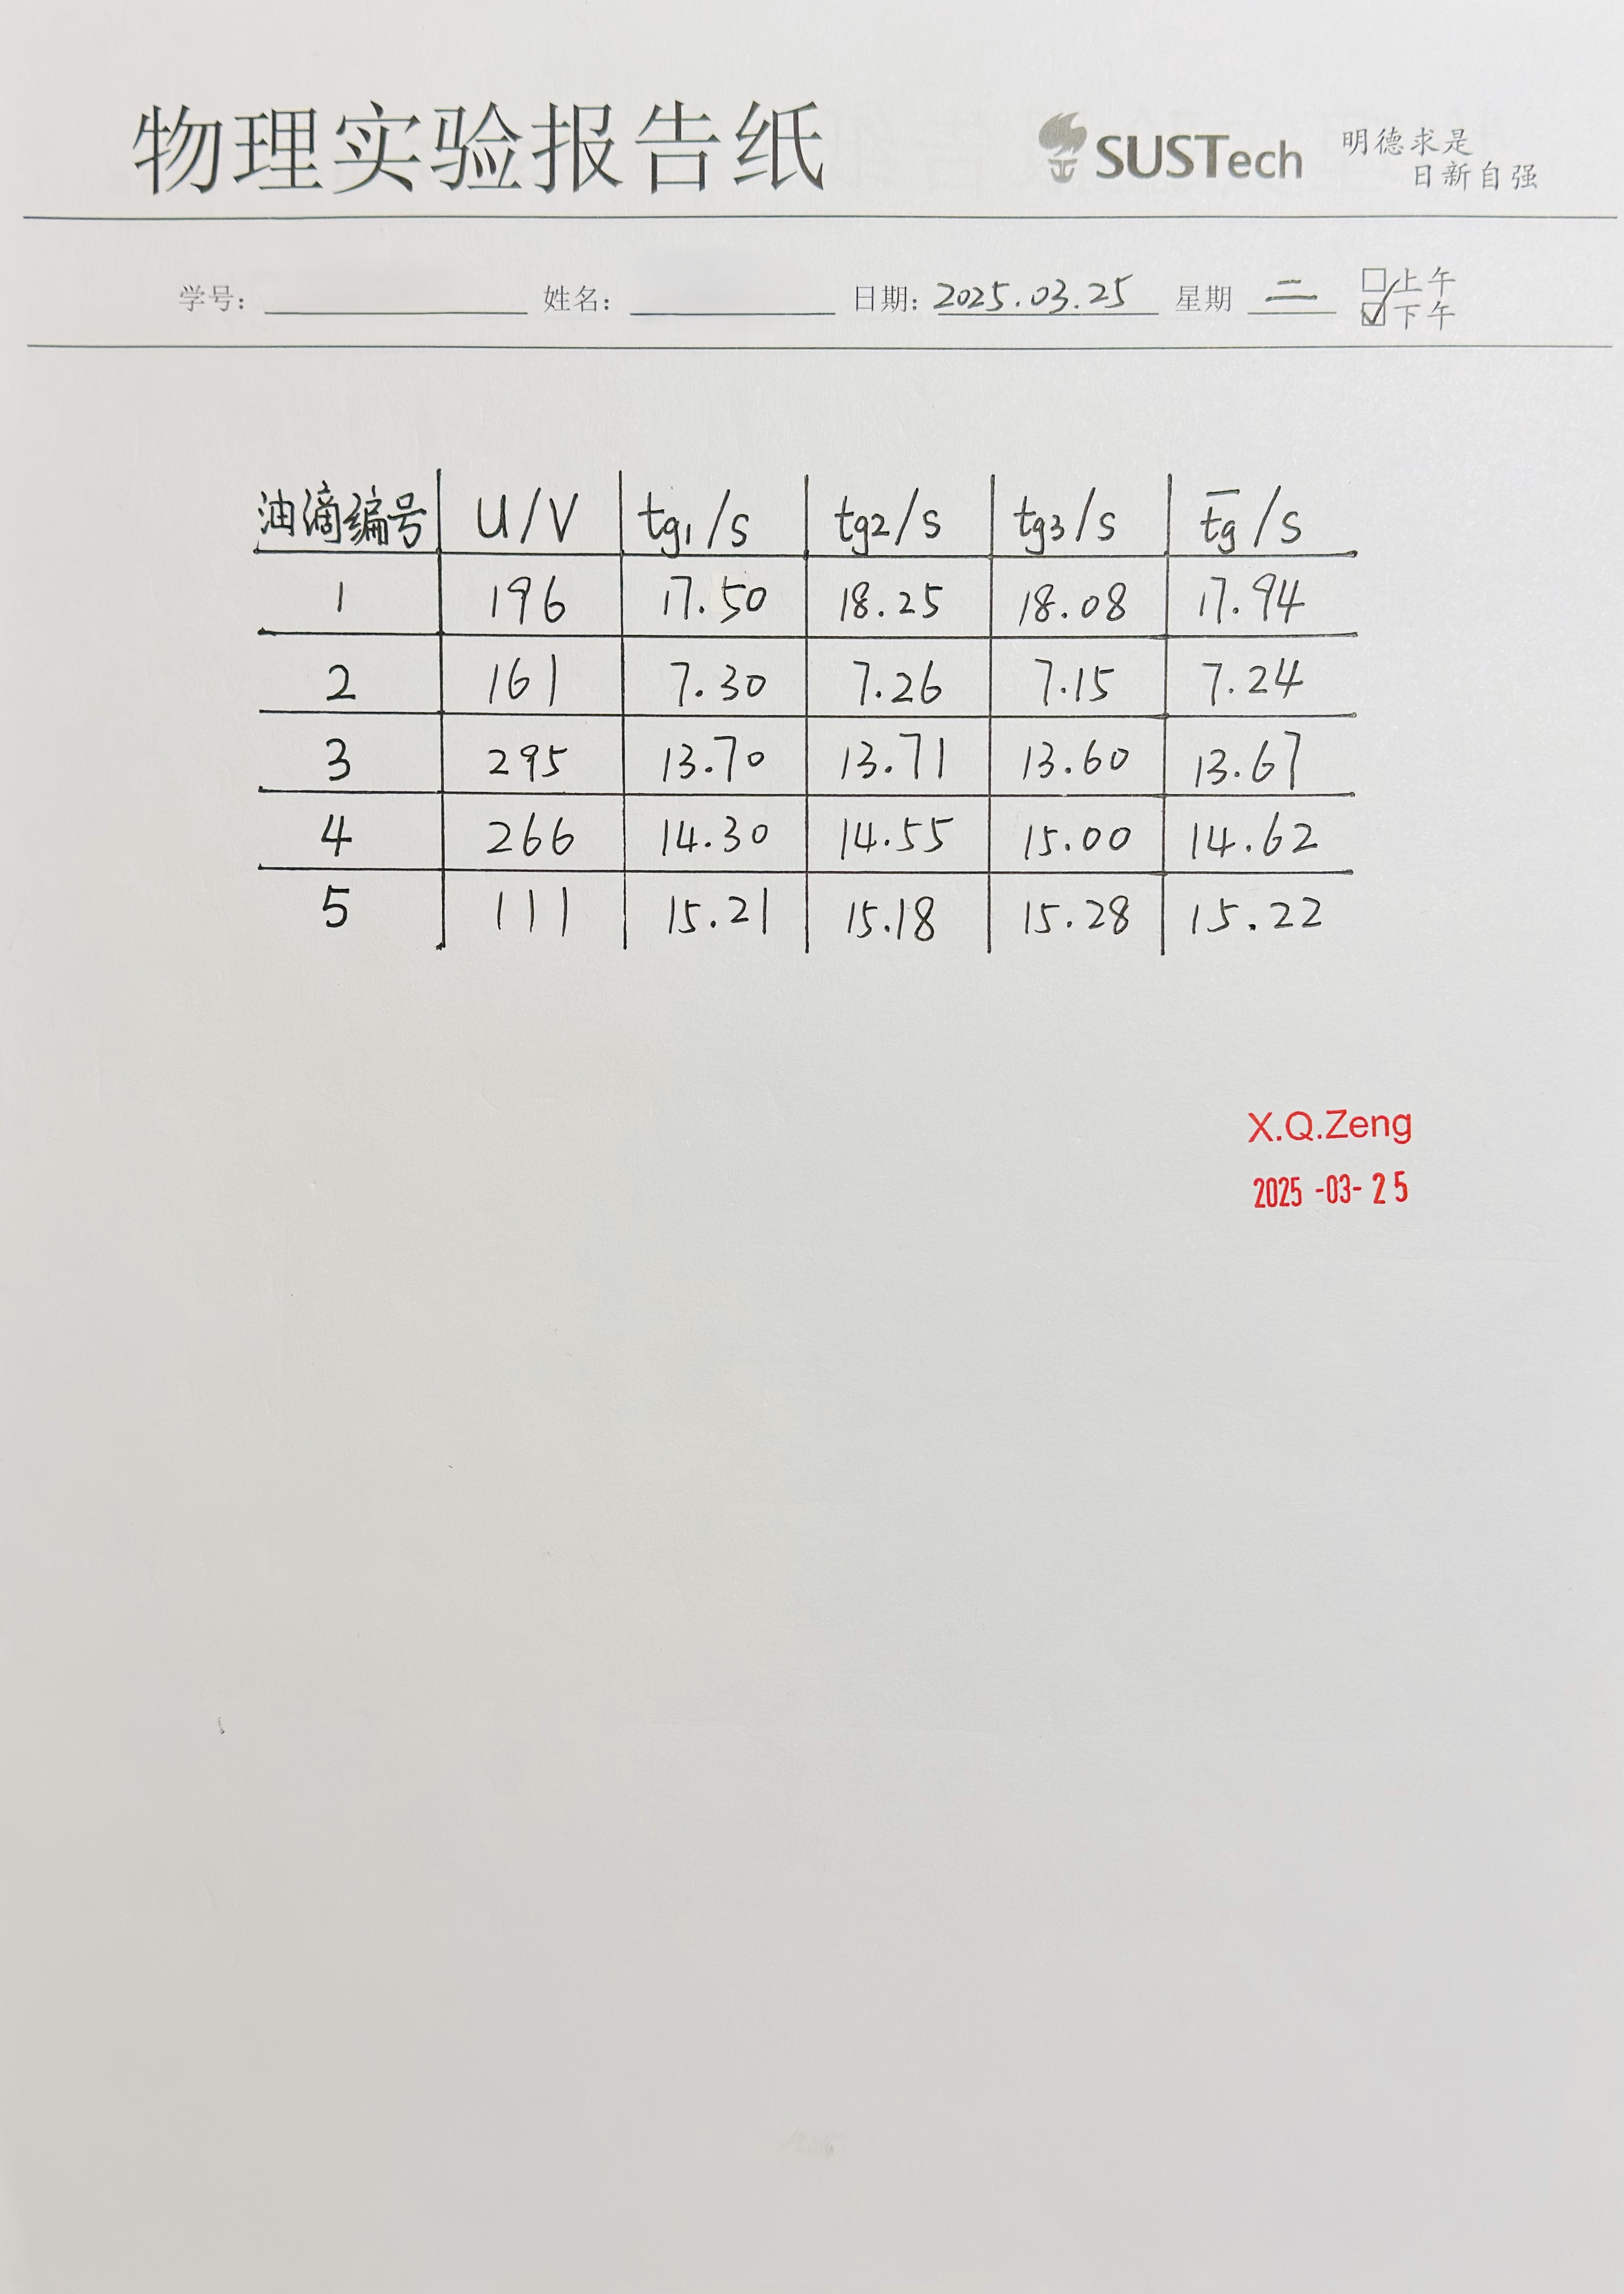 物理实验报告纸
SUSTech 明德求是
日新自强
学号: 姓名: 日期: 2025.03.25 星期 二 □上午
☑下午
油滴编号 U/V tg1/s tg2/s tg3/s t̅g/s
1 196 17.50 18.25 18.08 17.94
2 161 7.30 7.26 7.15 7.24
3 295 13.70 13.71 13.60 13.67
4 266 14.30 14.55 15.00 14.62
5 111 15.21 15.18 15.28 15.22
X.Q.Zeng
2025-03-25